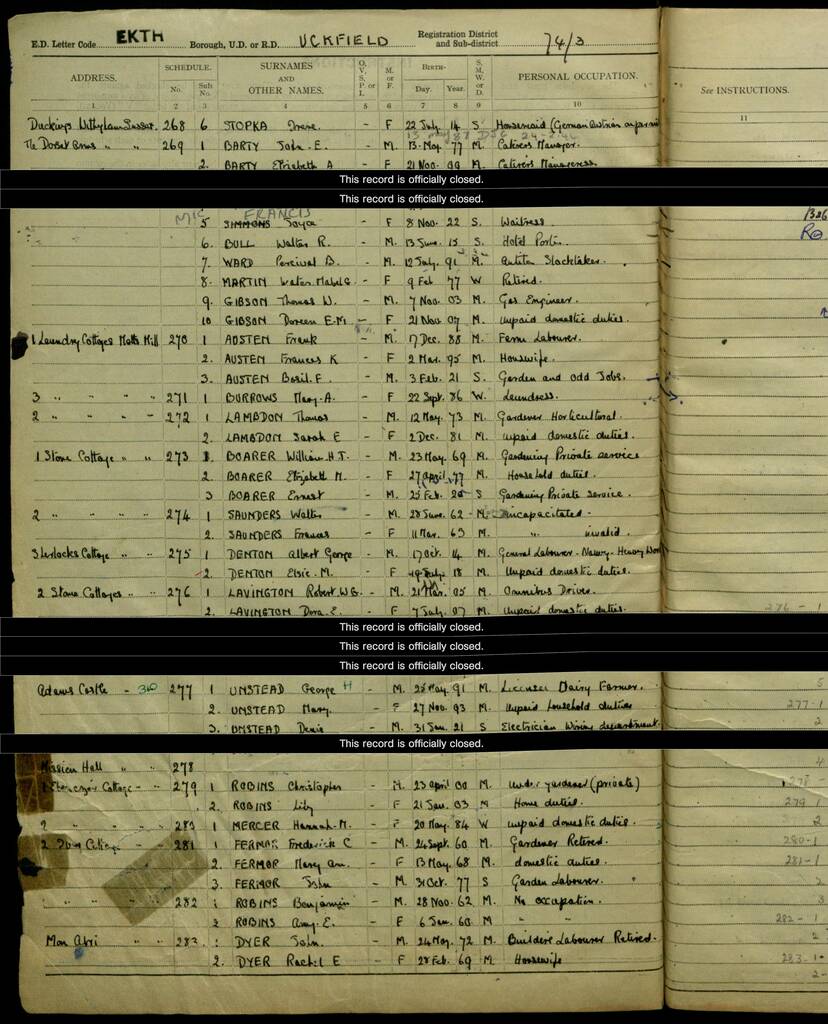 E.D. Letter Code EKTH Borough, U.D. or R.D. UCKFIELD Registration District and Sub-district 74/3
ADDRESS. SCHEDULE. No. Sub No. SURNAMES AND OTHER NAMES. O. V. S. P. or I. M. or F. BIRTH— Day. Year. S. M. W. or D. PERSONAL OCCUPATION. See INSTRUCTIONS.
1 2 3 4 5 6 7 8 9 10 11
Duckings Withyham Sussex. 268 6 STOPKA Irene. - F 22 July 14 S Housemaid (German
The Dorset Arms " " 269 1 BARTY John. E. - M. 13 May 77 M. Caterers Manager.
2. BARTY Elizabeth A - F 21 Nov. 99 M. Caterers Manageress.
This record is officially closed.
This record is officially closed.
FRANCIS
5 SIMMONS Joyce - F 8 Nov. 22 S. Waitress.
6. BULL Walter R. - M. 13 June. 15 S. Hotel Porter.
7. WARD Percival B. - M. 12 July. 91 M. Slocktaker.
8. MARTIN Mabel G - F 9 Feb 77 W Retired.
9. GIBSON Thomas W. - M. 7 Nov. 03 M. Gas Engineer.
10 GIBSON Doreen E.M. - F 21 Nov 07 M. Unpaid domestic duties.
1 Laundry Cottages Motts Mill 270 1 AUSTEN Frank - M. 17 Dec. 88 M. Farm Labourer.
2. AUSTEN Frances K - F 2 Mar. 95 M. Housewife.
3. AUSTEN Basil. F. - M. 3 Feb. 21 S. Garden and odd Jobs.
3 " " " " 271 1 BURROWS Mary. A. - F 22 Sept. 86 W. Laundress.
2 " " " " 272 1 LAMBDON Thomas M. 12 May. 73 M. Gardener Horticultural.
2. LAMBDON Sarah E - F 2 Dec. 81 M. unpaid domestic duties.
1 Stone Cottage " " 273 1. BOARER William. H.T. - M. 23 May. 69 M. Gardening Private service
2 BOARER Elizabeth M. - F 27 April 77 M. Household duties.
3 BOARER Ernest - M. 25 Feb. 20 S Gardening Private Service.
2 " " " 274 1 SAUNDERS Walter - M. 28 June. 62 M. Incapacitated.
2. SAUNDERS Frances - F 11 Mar. 63 M. " invalid.
Cottage " " 275 1 DENTON Albert George M. 17 Oct. 14 M. General Labourer - Heavy Work
2. DENTON Elsie. M. - F 19 July 18 M. Unpaid domestic duties.
2 Stone Cottages " " 276 1 LAVINGTON Robert. W.G. - M. 21 Mar. 05 M. Omnibus Driver.
2. LAVINGTON Dora. E. - F 7 July. 07 M. Unpaid domestic duties. 276 - 1
This record is officially closed.
This record is officially closed.
This record is officially closed.
Adams Castle 277 1 UNSTEAD George H - M. 25 May. 91 M. Licensee Dairy Farmer. 5
2. UNSTEAD Mary. - F 27 Nov. 93 M. Unpaid household duties 277-1
3. UNSTEAD Denis - M. 31 Jan. 21 S Electrician Wiring department. 2
This record is officially closed.
Mission Hall " " 278 4
1 Ebenezer Cottage " " 279 1 ROBINS Christopher - M. 23 april 00 M. under gardener (private)
2. ROBINS Lily - F 21 Jan. 03 M Home duties. 279 1
2 " " " 280 1 MERCER Hannah. M. - F 20 May. 84 W unpaid domestic duties. 2
2 Cottage " 281 1 FERMOR Frederick C - M. 24 Sept. 60 M. Gardener Retired. 280-1
2. FERMOR Mary Ann. - F 13 May. 68 M. domestic duties. 281-1
3. FERMOR John - M. 31 Oct. 77 S Garden Labourer. 2
" " " 282 1 ROBINS Benjamin - M. 28 Nov. 62 M. No occupation. 3
2 ROBINS Amy. E. - F 6 Jan. 60 M " " 282 - 1
Mon Abri " " 283 1 DYER John. - M. 24 May. 72 M. Builders Labourer Retired. 2
2. DYER Rachel E - F 28 Feb. 69 M. Housewife 283-1
2